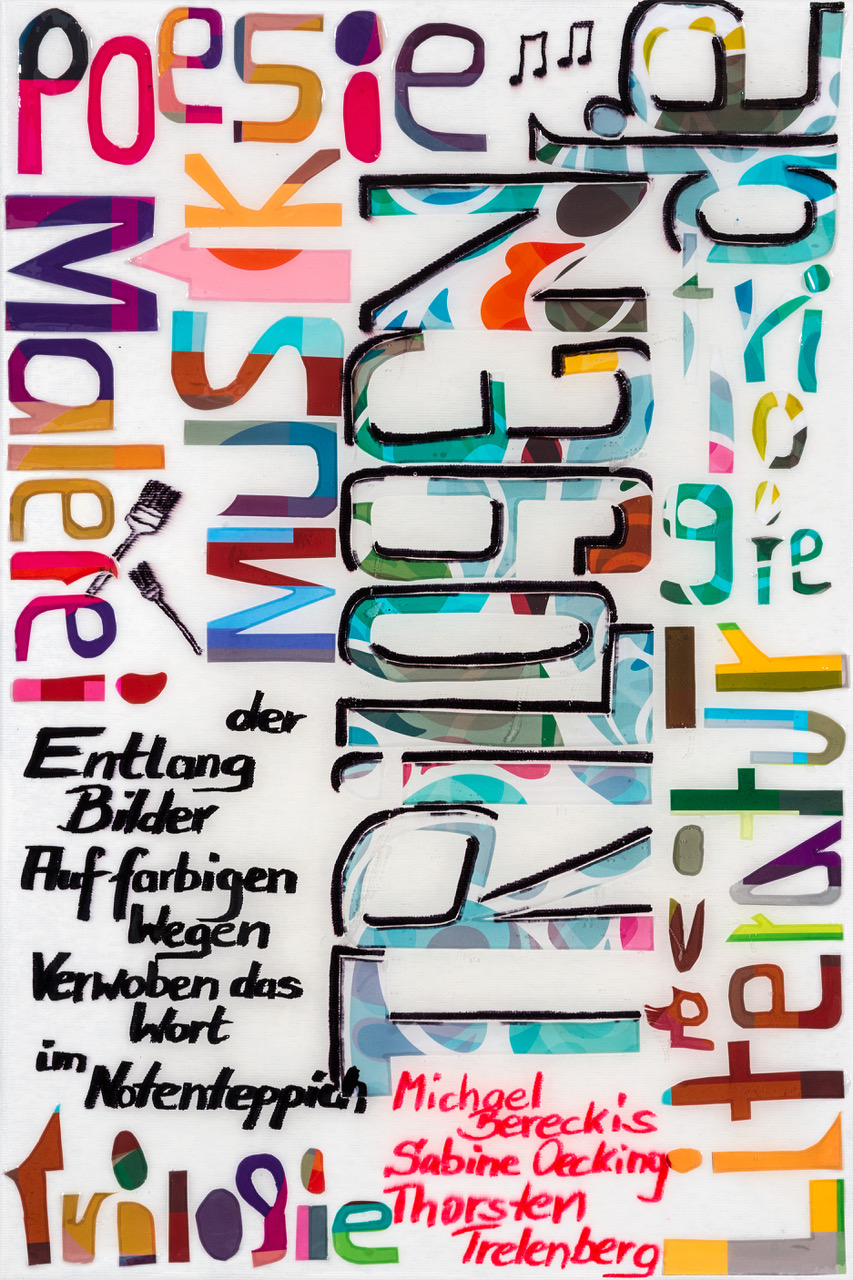 Poesie
Malerei
Musik
die
TRiLOGEN
Literatur
der
Entlang
Bilder
Auf farbigen
Wegen
Verwoben das
Wort
im
Notenteppich
Michael
Bereckis
Sabine Oecking
Thorsten
Trelenberg
Trilogie